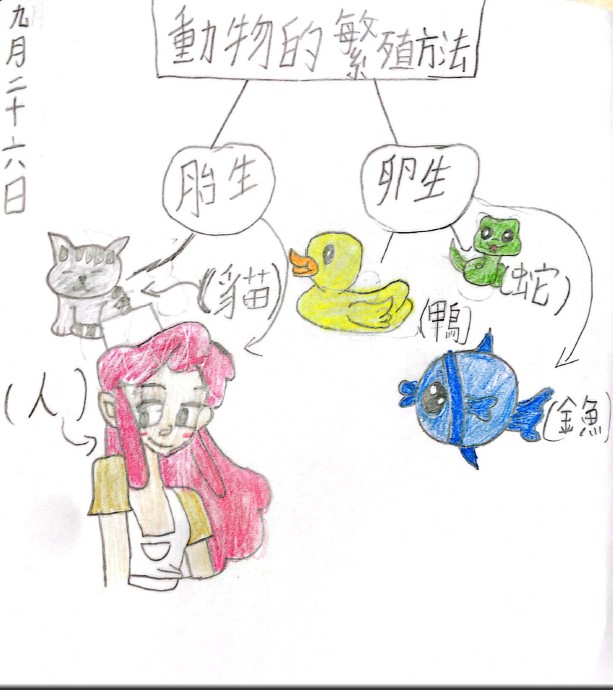 九月二十六日
動物的繁殖方法
胎生
卵生
(貓)
(鴨)
(蛇)
(人)
(金魚)